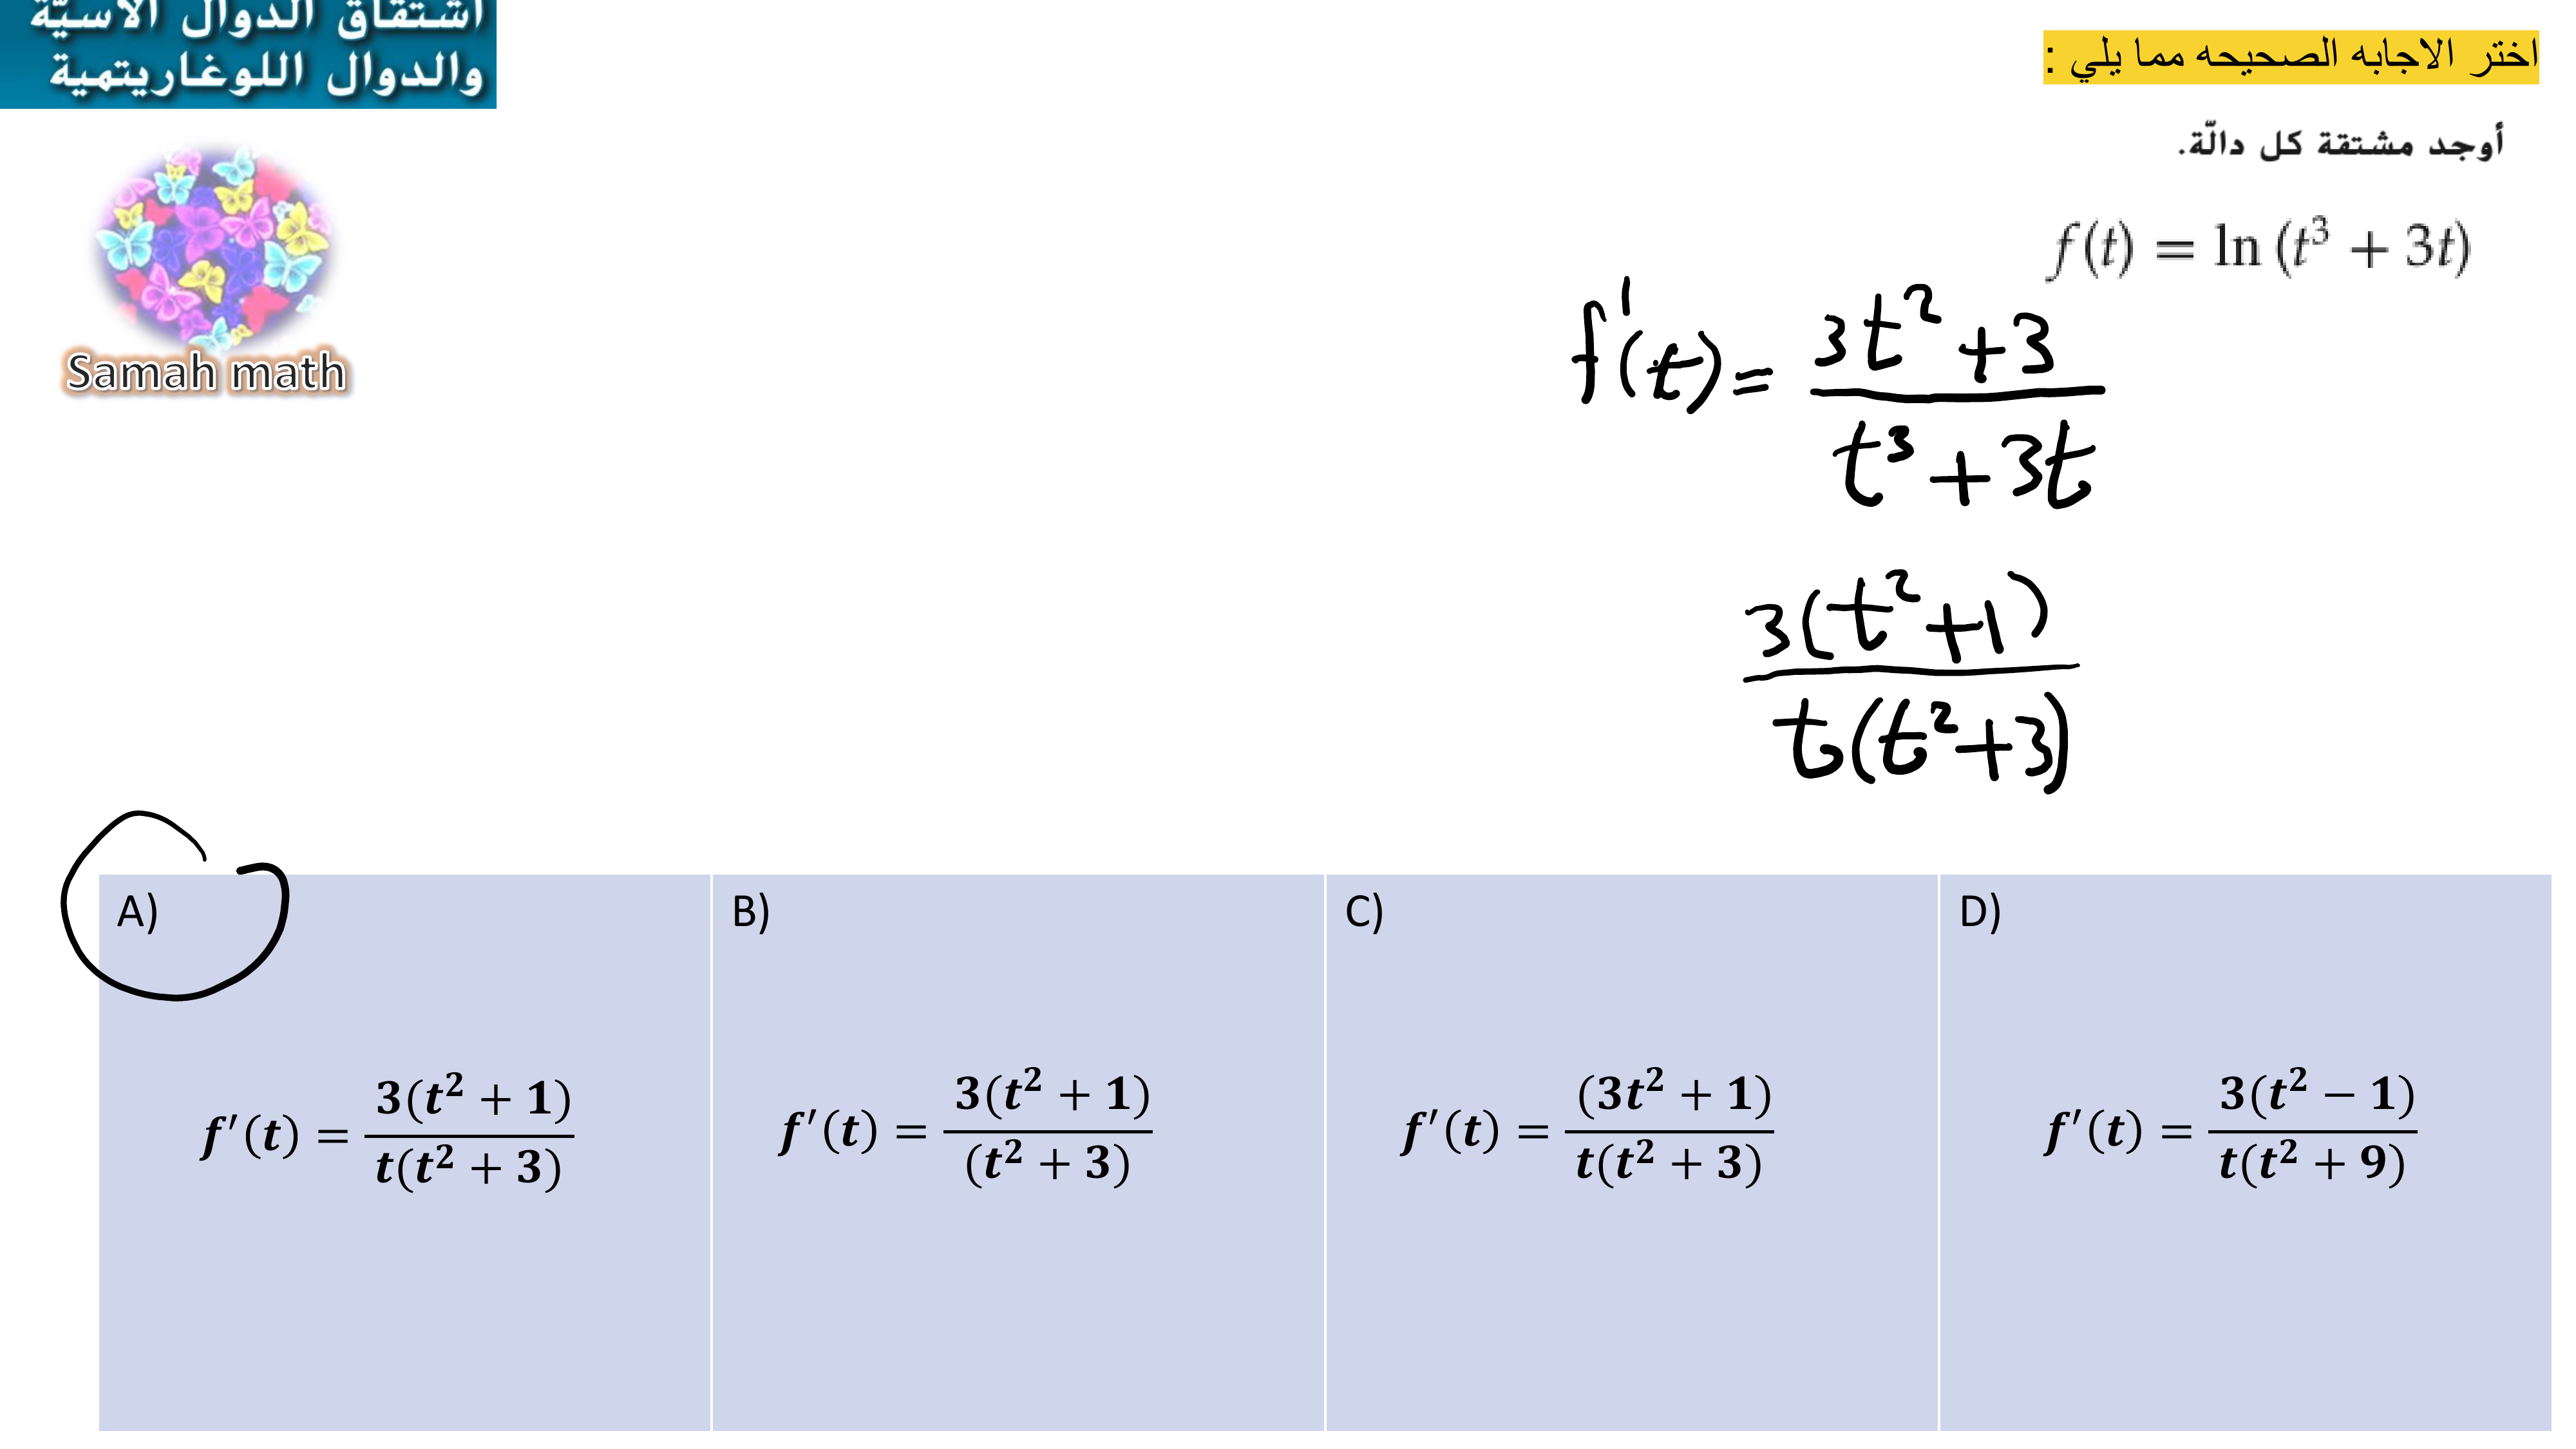 اشتقاق الدوال الأسيّة
والدوال اللوغاريتمية
اختر الاجابه الصحيحه مما يلي :
أوجد مشتقة كل دالّة.
f(t) = ln (t³ + 3t)
Samah math
f'(t) = (3t² + 3)/(t³ + 3t)
3(t² + 1)/t(t² + 3)
A)
f′(t) = 3(t² + 1)/t(t² + 3)
B)
f′(t) = 3(t² + 1)/(t² + 3)
C)
f′(t) = (3t² + 1)/t(t² + 3)
D)
f′(t) = 3(t² − 1)/t(t² + 9)